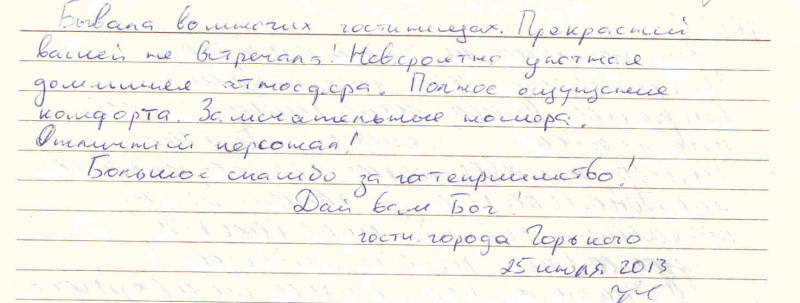 Бывала во многих гостиницах. Прекрасней
вашей не встречала! Невероятно уютная
домашняя атмосфера. Полное ощущение
комфорта. Замечательные номера.
Отличный персонал!
Большое спасибо за гостеприимство!
Дай вам Бог!
гости города Горького
25 июля 2013